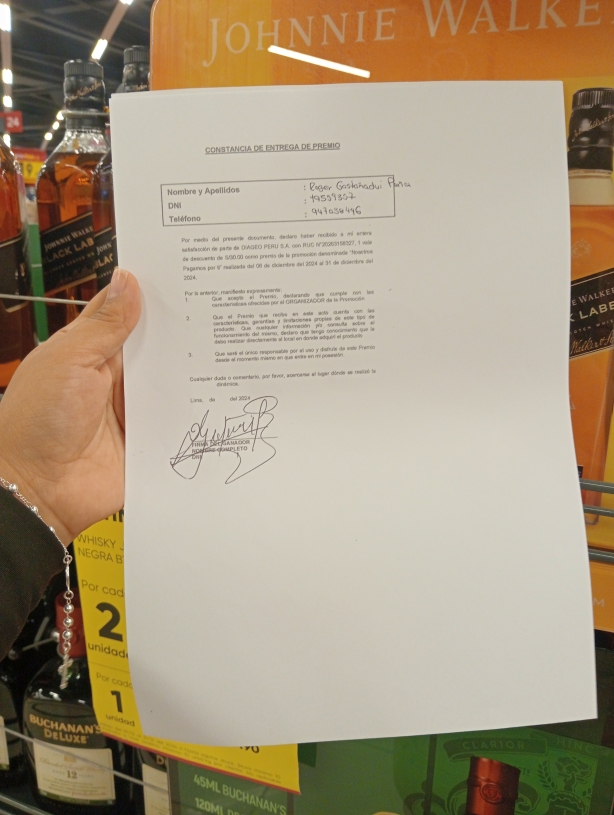 JOHNNIE WALKE
24
CONSTANCIA DE ENTREGA DE PREMIO
Nombre y Apellidos : Roger Gastañadui
DNI
Teléfono
Por medio del presente documento, declaro haber recibido a mi entera
satisfacción de parte de DIAGEO PERU S.A. con RUC N°, 1 vale
de descuento de S/50.00 como premio de la promoción denominada
Pagamos por ti" realizada del 05 de diciembre del 2024 al 31 de diciembre del
2024.
Por lo anterior, manifiesto expresamente:
1. Que acepto el Premio, declarando que cumple con las
características ofrecidas por el ORGANIZADOR de la Promoción
2. Que el Premio que recibo en este acto cuenta con las
características, garantías y limitaciones propias de este tipo de
producto. Que cualquier información y/o consulta sobre el
funcionamiento del mismo, declaro que tengo conocimiento que la
debo realizar directamente al local en donde adquirí el producto.
3. Que seré el único responsable por el uso y disfrute de este Premio
desde el momento mismo en que entre en mi posesión.
Cualquier duda o comentario, por favor, acercarse al lugar donde se realizó la
dinámica.
Lima, de del 2024
FIRMA DEL GANADOR
NOMBRE COMPLETO
DNI
JOHNNIE WALKER
BLACK LAB
WALKE
K LABE
WHISKY J
NEGRA B
Por cad
2
unidad
Por cad
1
unidad
BUCHANAN'S
DELUXE
12
45ML BUCHANAN'S
120ML